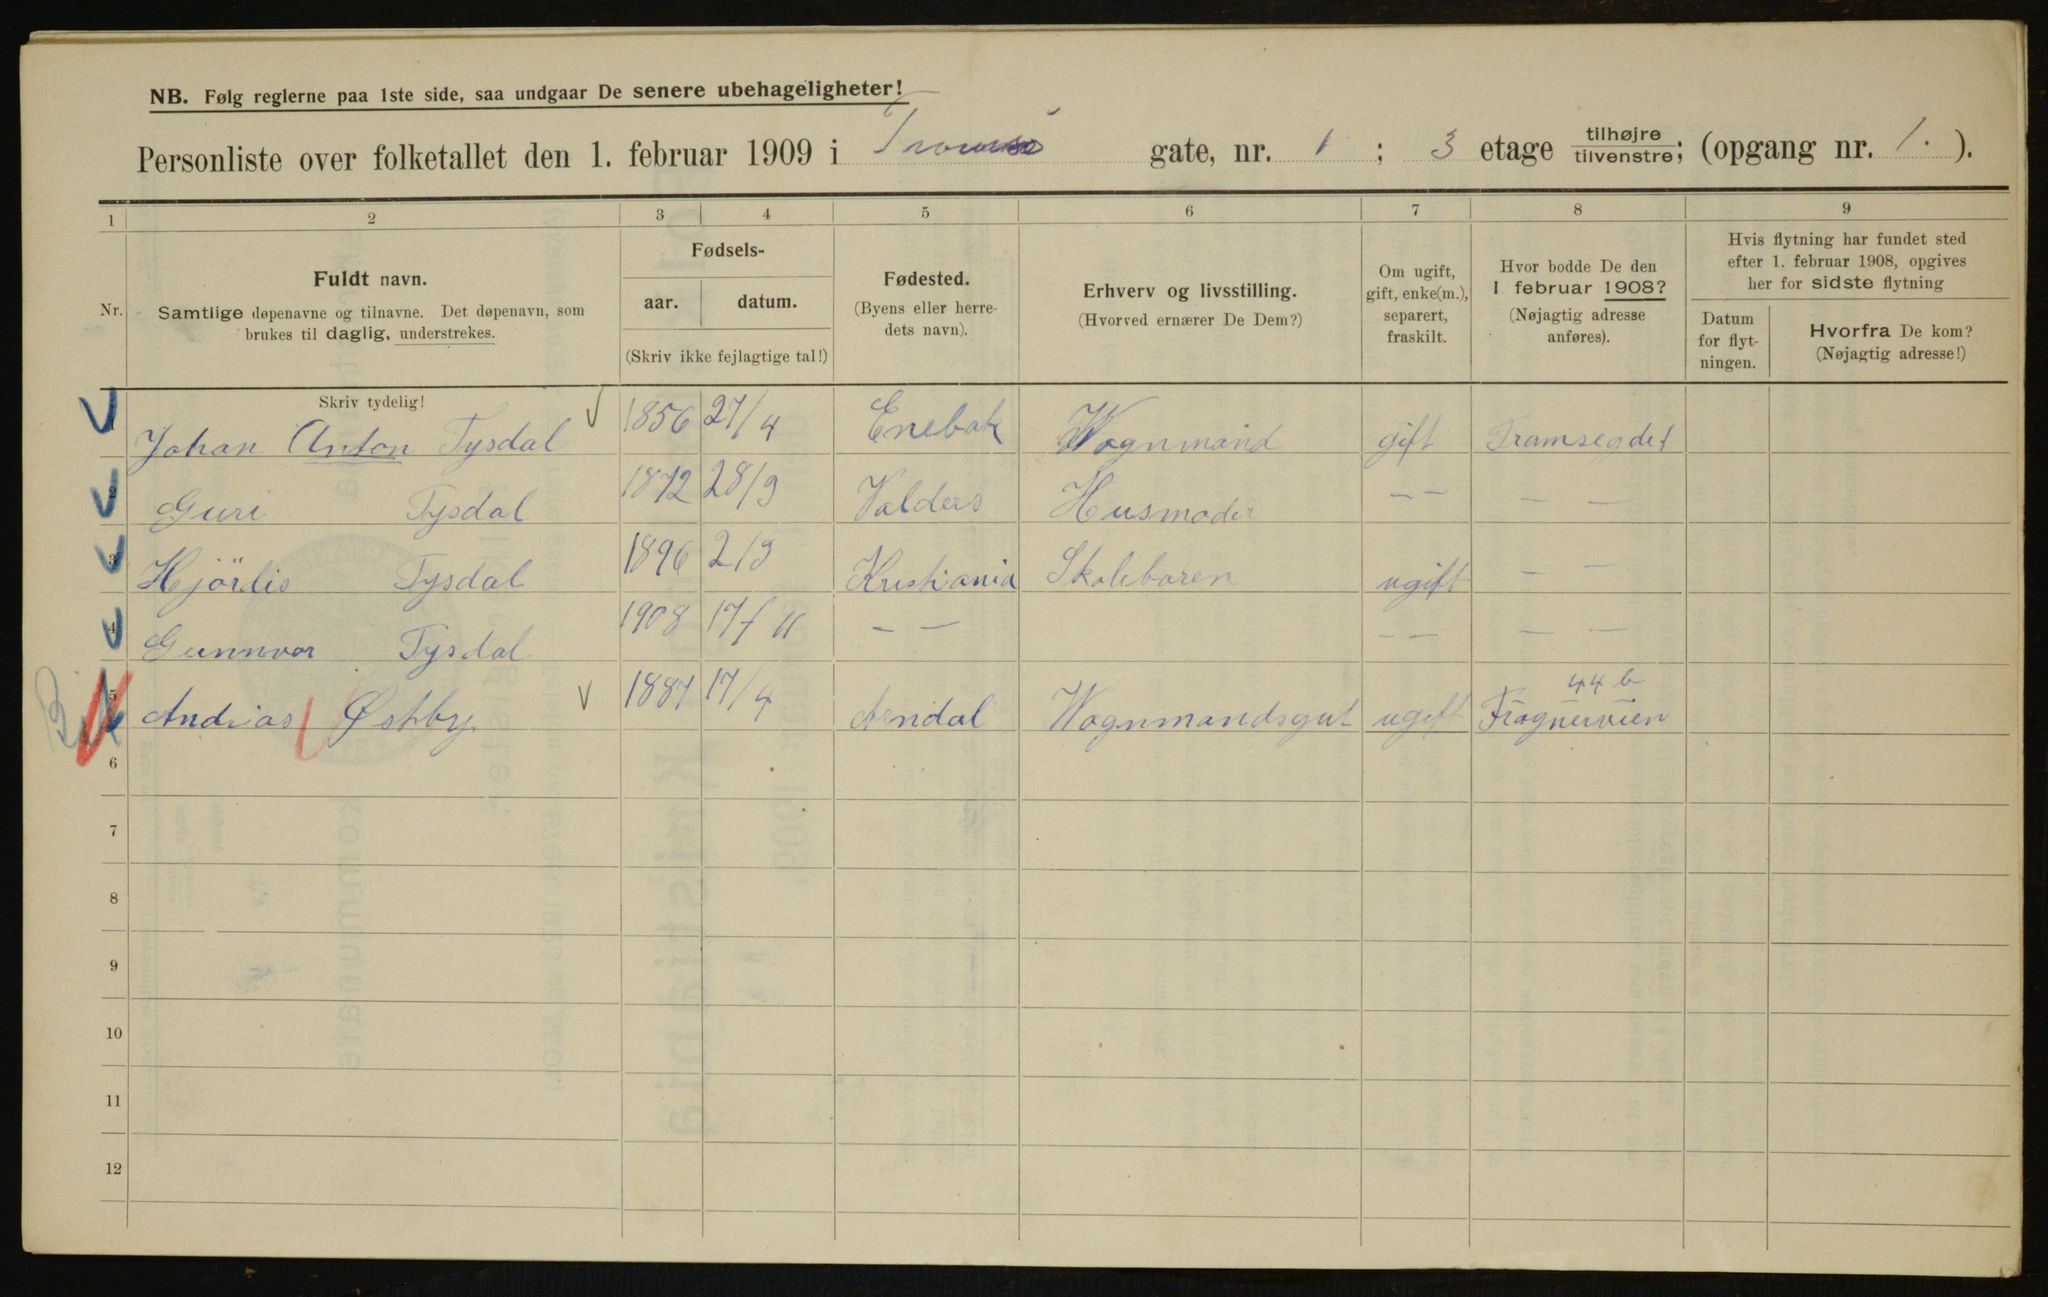 NB. Følg reglerne paa 1ste side, saa undgaar De senere ubehageligheter!
Personliste over folketallet den 1. februar 1909 i Tromsö gate, nr. 1; 3 etage tilhøjre tilvenstre; (opgang nr. 1.).
1 2 3 4 5 6 7 8 9
Nr.
Fuldt navn.
Samtlige døpenavne og tilnavne. Det døpenavn, som
brukes til daglig, understrekes.
Fødsels-
aar. datum.
(Skriv ikke fejlagtige tal!)
Fødested.
(Byens eller herre-
dets navn).
Erhverv og livsstilling.
(Hvorved ernærer De Dem?)
Om ugift,
gift, enke(m.),
separert,
fraskilt.
Hvor bodde De den
1 februar 1908?
(Nøjagtig adresse
anføres).
Hvis flytning har fundet sted
efter 1. februar 1908, opgives
her for sidste flytning
Datum
for flyt-
ningen.
Hvorfra De kom?
(Nøjagtig adresse!)
Skriv tydelig!
Johan Anton Tysdal 1856 27/4 Enebak Wognmand gift Tramsegdet
2 Guri Tysdal 1872 28/9 Valders Husmoder — — — —
3 Hjördis Tysdal 1896 2/9 Kristiania Skolebaren ugift — —
4 Gunnvor Tysdal 1908 17/11 — — — — — —
5 Andreas Østby 1887 17/4 Arndal Wognmandsgut ugift Frognerveien 44 b
6
7
8
9
10
11
12